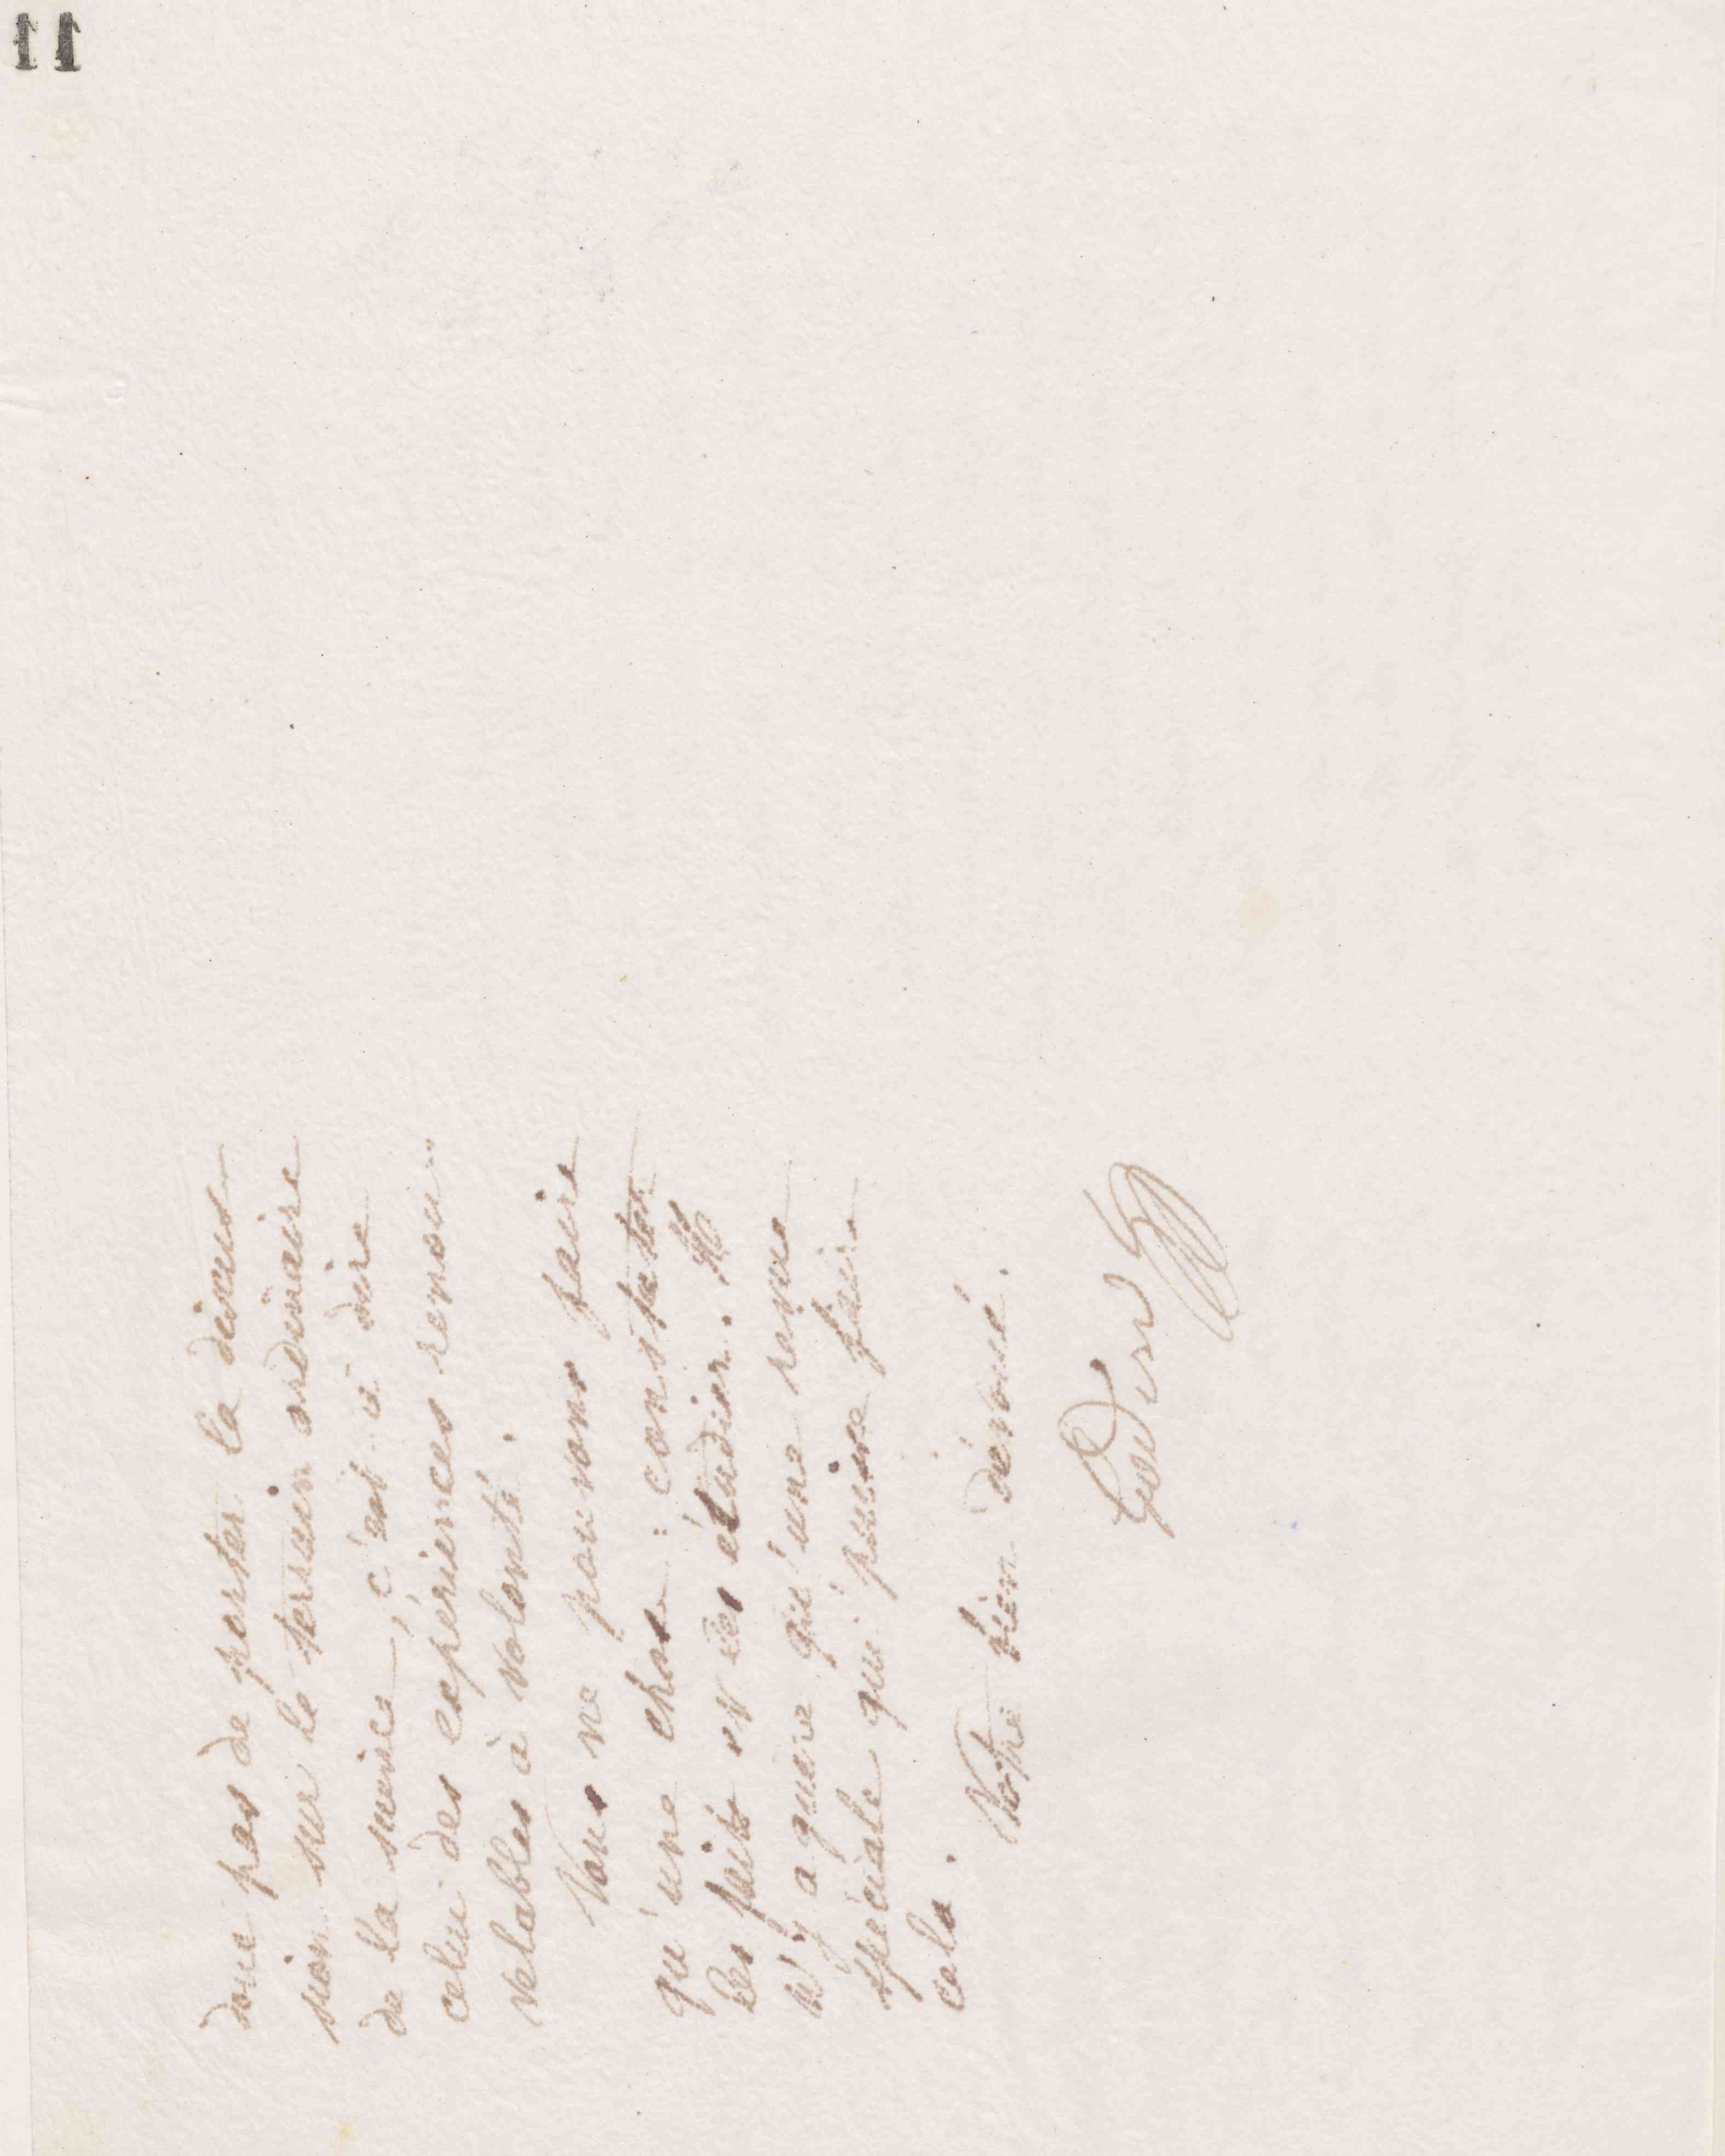 donc pas de porter la discus-
sion sur le terrain ordinaire
de la science, c'est à dire
celui des expériences renou-
velables à volonté.
Nous ne pouvons faire
qu'une chose : constater
les faits et les étudier. Il
n'y a guère qu'une revue
spéciale qui puisse faire
cela.
Votre bien dévoué.
11